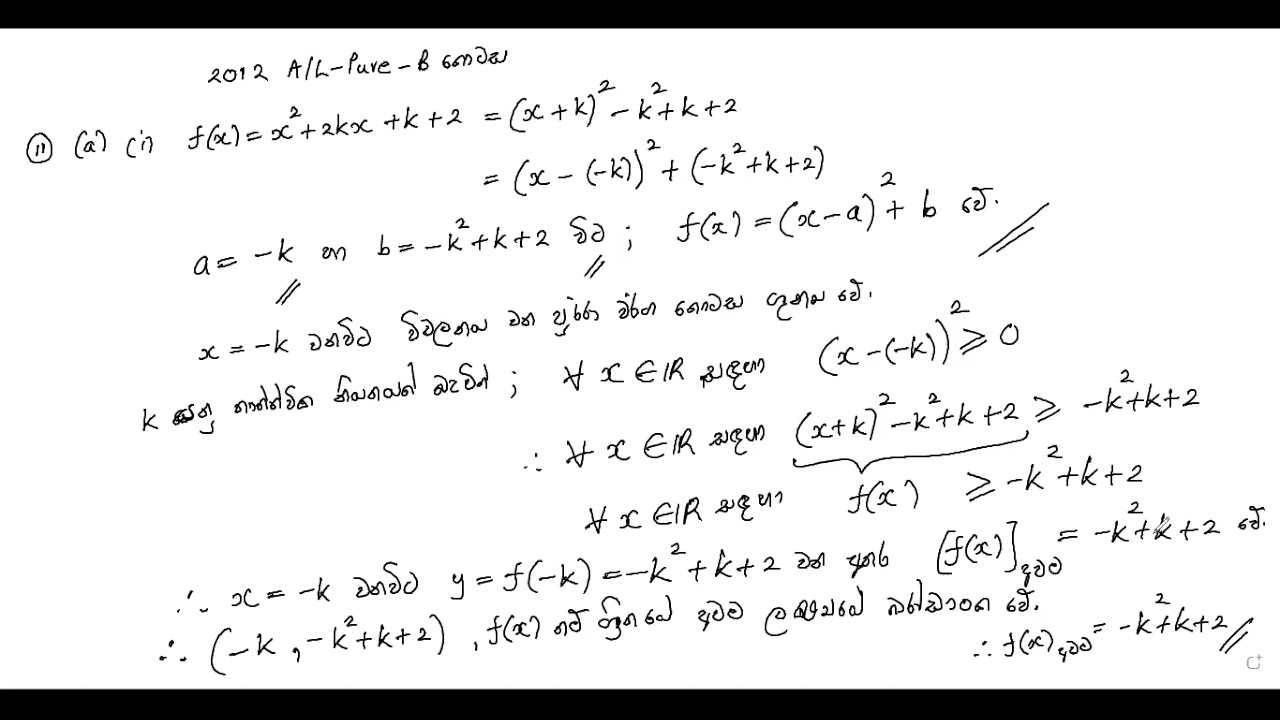 2012 A/L-Pure-B කොටස
⑪ (a) (i) f(x) = x² + 2kx + k + 2 = (x + k)² - k² + k + 2
= (x - (-k))² + (-k² + k + 2)
a = -k හා b = -k² + k + 2 විට ; f(x) = (x - a)² + b වේ.
x = -k වනවිට විචල්‍යය වන පූර්ණ වර්ග කොටස ශුන්‍ය වේ.
k යනු තාත්ත්වික නියතයක් බැවින් ; ∀ x ∈ ℝ සඳහා (x - (-k))² ≥ 0
∴ ∀ x ∈ ℝ සඳහා (x + k)² - k² + k + 2 ≥ -k² + k + 2
∀ x ∈ ℝ සඳහා f(x) ≥ -k² + k + 2
∴ x = -k වනවිට y = f(-k) = -k² + k + 2 වන අතර [f(x)]අවම = -k² + k + 2 වේ.
∴ (-k, -k² + k + 2), f(x) හි අවම ලක්ෂ්‍යයේ ඛණ්ඩාංක වේ.
∴ f(x)අවම = -k² + k + 2